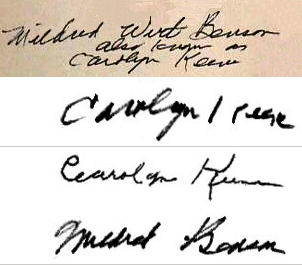 Mildred Wirt Benson
also known as
Carolyn Keene
Carolyn Keene
Carolyn Keene
Mildred Benson